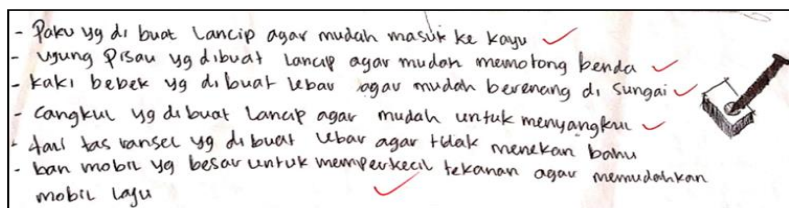 - Paku yg di buat Lancip agar mudah masuk ke kayu
- ujung pisau yg dibuat Lancip agar mudah memotong benda
- kaki bebek yg di buat lebar agar mudah berenang di sungai
- cangkul yg dibuat Lancip agar mudah untuk menyangkul
- tali tas ransel yg di buat lebar agar tidak menekan bahu
- ban mobil yg besar untuk memperkecil tekanan agar memudahkan
mobil laju